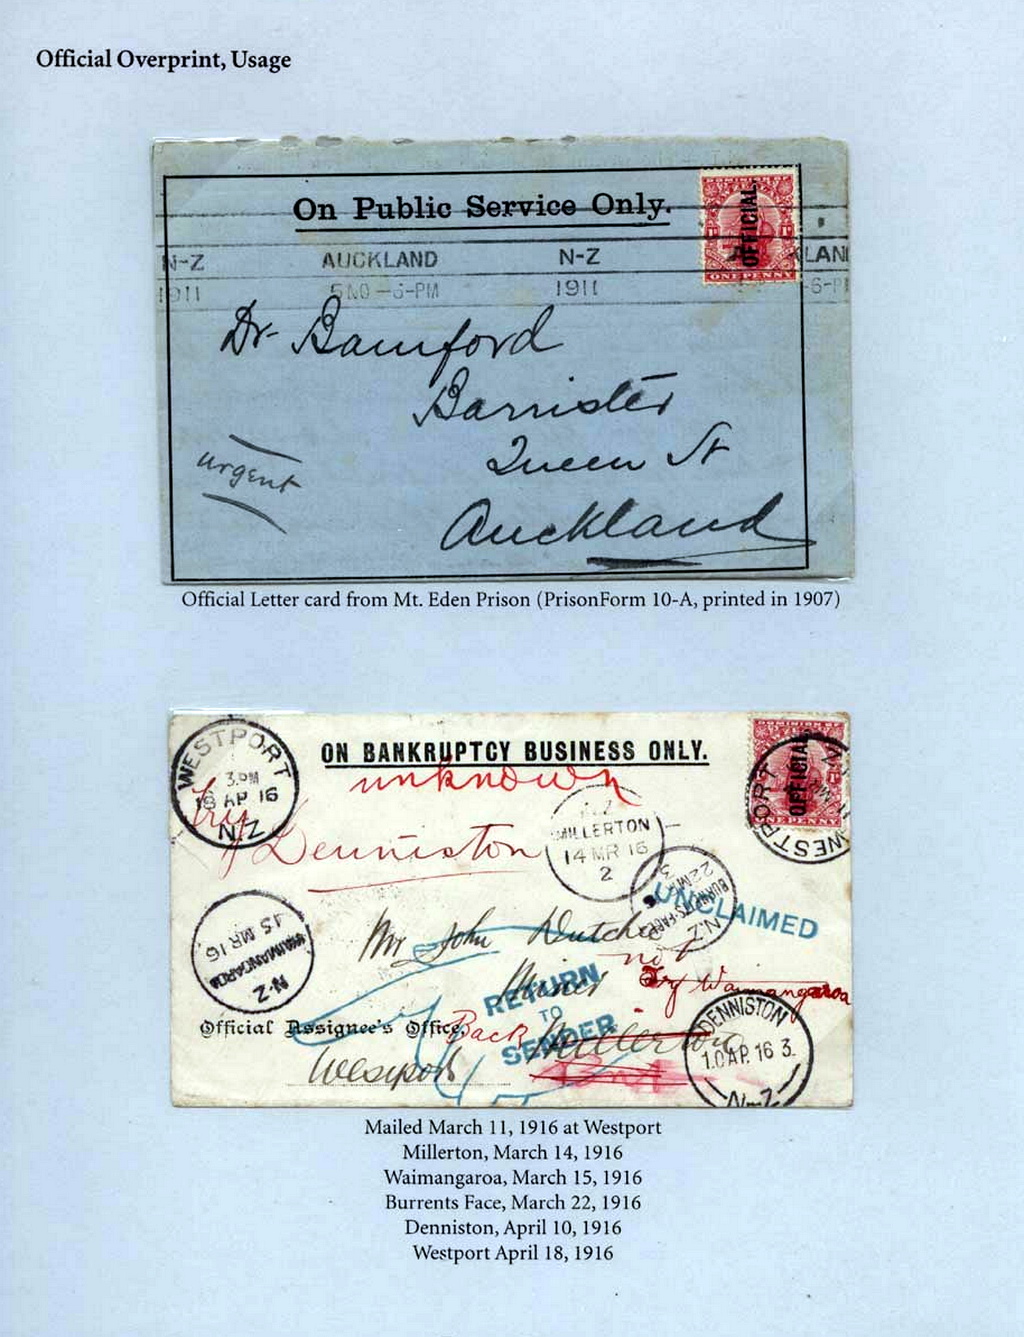 Official Overprint, Usage
On Public Service Only.
DOMINION OF
OFFICIAL
ONE PENNY
N-Z AUCKLAND N-Z
1911 5 NO -6-PM 1911 -6-PM
Dr. Bamford
Barrister
Queen St
Auckland
urgent
Official Letter card from Mt. Eden Prison (PrisonForm 10-A, printed in 1907)
WESTPORT
3.PM
18 AP 16
N.Z
ON BANKRUPTCY BUSINESS ONLY.
DOMINION OF
OFFICIAL
ONE PENNY
WESTPORT
unknown
Try Denniston
MILLERTON
14 MR 16
2
N.Z
UNCLAIMED
WAIMANGAROA
15 MR 16
N.Z
Mr John
Miner
not
Try Waimangaroa
RETURN
TO
SENDER
Official Assignee's Office,
Back
Millerton
Westport
DENNISTON
10 AP. 16 3
N.Z
Mailed March 11, 1916 at Westport
Millerton, March 14, 1916
Waimangaroa, March 15, 1916
Burrents Face, March 22, 1916
Denniston, April 10, 1916
Westport April 18, 1916